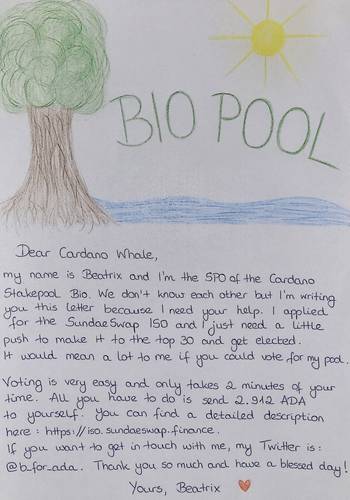 BIO POOL
Dear Cardano Whale,
my name is Beatrix and I'm the SPO of the Cardano
Stakepool Bio. We don't know each other but I'm writing
you this letter because I need your help. I applied
for the SundaeSwap ISO and I just need a little
push to make it to the top 30 and get elected.
It would mean a lot to me if you could vote for my pool.
Voting is very easy and only takes 2 minutes of your
time. All you have to do is send 2.912 ADA
to yourself. You can find a detailed description
here: https://iso.sundaeswap.finance.
If you want to get in touch with me, my Twitter is:
@b_for_ada_. Thank you so much and have a blessed day!
Yours, Beatrix ♥